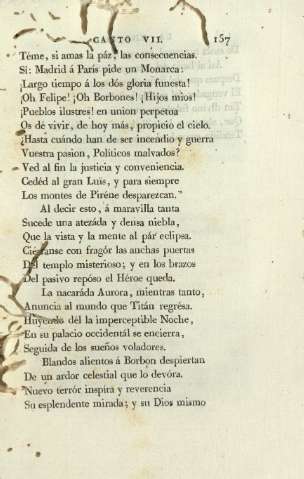 CANTO VII. 157
Téme, si amas la páz, las consecuencias.
Si: Madrid á París pide un Monarca:
¡Largo tiempo á los dós gloria funesta!
¡Oh Felipe! ¡Oh Borbones! ¡Hijos mios!
¡Pueblos ilustres! en union perpetua
Os dé vivir, de hoy más, propicio el cielo.
¿Hasta cuándo han de ser incendio y guerra
Vuestra pasion, Políticos malvados?
Ved al fin la justicia y conveniencia.
Cedéd al gran Luís, y para siempre
Los montes de Piréne desparezcan."
Al decir esto, á maravilla tanta
Sucede una atezáda y densa niebla,
Que la vista y la mente al pár eclipsa.
Ciérranse con fragór las anchas puertas
Del templo misterioso; y en los brazos
Del pasivo repóso el Héroe queda.
La nacaráda Aurora, mientras tanto,
Anuncia al mundo que Titán regrésa.
Huyendo dél la imperceptible Noche,
En su palacio occidentál se encierra,
Seguida de los sueños voladores.
Blandos alientos á Borbon despiertan
De un ardor celestial que lo devóra.
Nuevo terrór inspirá y reverencia
Su esplendente mirada; y su Dios mismo